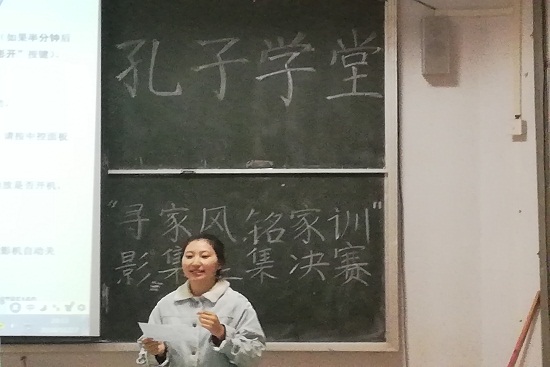 (如果半分钟后
开"按键).
请按中控面板
是否开机。
影机自动关
孔子学堂
"寻家风,铭家训"
集决赛